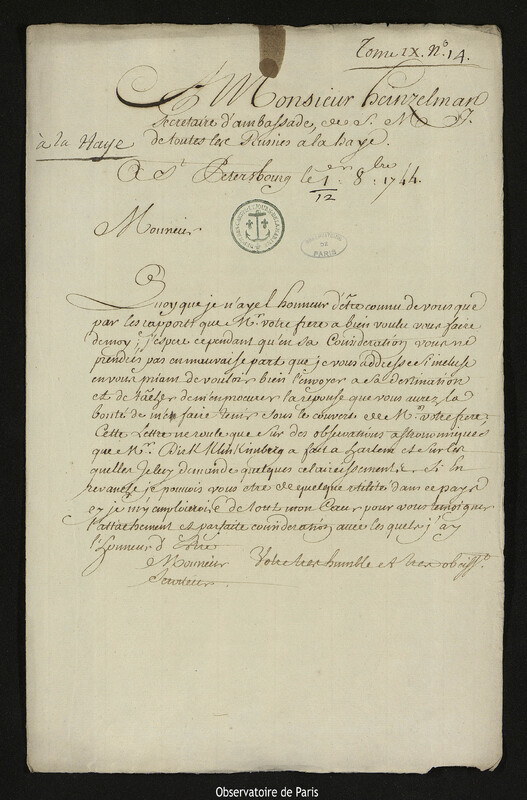 Tome IX. N.° 14.
A Monsieur heinzelman
Secretaire d'ambassade de S. M. I.
à la Haye
de toutes les Russies a la haye.
A St Petersbourg le 1er/12 8bre 1744.
Monsieur
OBSERVATOIRE DE PARIS
Quoy que je n'aye l'honneur d'être connu de vous que
par les rapports que Mr. votre frere a bien voulu vous faire
de moy; j'espere cependant qu'en sa Consideration vous ne
prendrés pas en mauvaise part que je vous addresse l'incluse
en vous priant de vouloir bien l'envoyer a sa destination
et de tacher de m'en procurer la reponse que vous aurez la
bonté de me faire tenir sous le couvert de Mr. votre frere,
Cette Lettre ne roule que sur des observations astronomiques
que Mr. Dirk Klinkenberg a fait a harlem et sur les
quelles je luy demande quelques eclaircissements. Si en
revanche je pouvois vous etre de quelque utilité dans ce pays
cy je m'y employerois de tout mon Cœur pour vous temoigner
l'attachement et parfaite consideration avec les quels j'ay
l'honneur d'Estre
Monsieur Votre tres humble et tres obeisst.
Serviteur
Observatoire de Paris